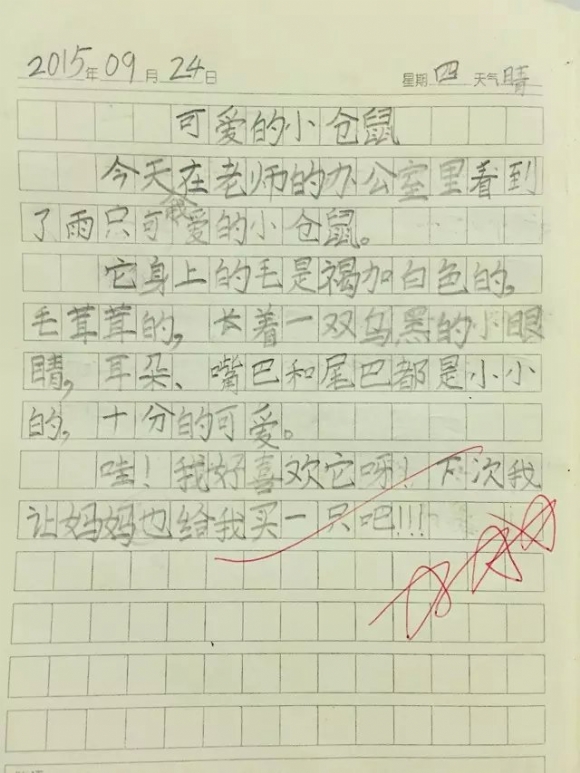 2015年09月24日 星期四 天气晴
可爱的小仓鼠
今天我在老师的办公室里看到
了雨只可爱的小仓鼠。
它身上的毛是褐加白色的,
毛茸茸的,长着一双乌黑的小眼
睛,耳朵、嘴巴和尾巴都是小小
的,十分的可爱。
哇!我好喜欢它呀!下次我
让妈妈也给我买一只吧!!!